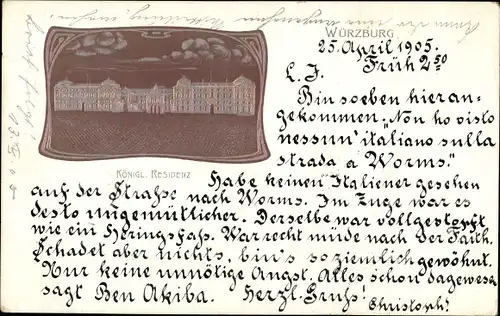 WÜRZBURG
25. April 1905.
Früh 2 50
L. J.
Bin soeben hier an-
gekommen. „Non ho visto
nessun' italiano sulla
strada a Worms."
KÖNIGL. RESIDENZ
Habe keinen Italiener gesehen
auf der Straße nach Worms. Im Zuge war es
desto ungemütlicher. Derselbe war vollgestopft
wie ein Heringsfaß. War recht müde nach der Fahrt.
Schadet aber nichts, bin's so ziemlich gewöhnt.
Nur keine unnötige Angst. Alles schon dagewesen
sagt Ben Akiba. Herzl. Gruß!
Christoph!